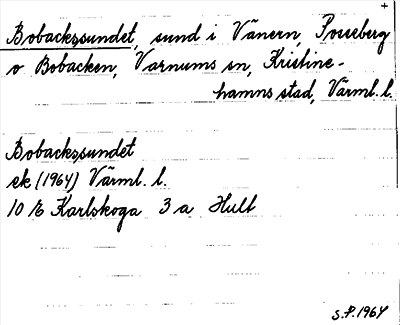 +
Bobackssundet, sund i Vänern, Posseberg
o Bobacken, Varnums sn, Kristine-
hamns stad, Värml. l.
Bobackssundet
ek (1964) Värml. l.
10 E Karlskoga 3 a Hult
S.P. 1964